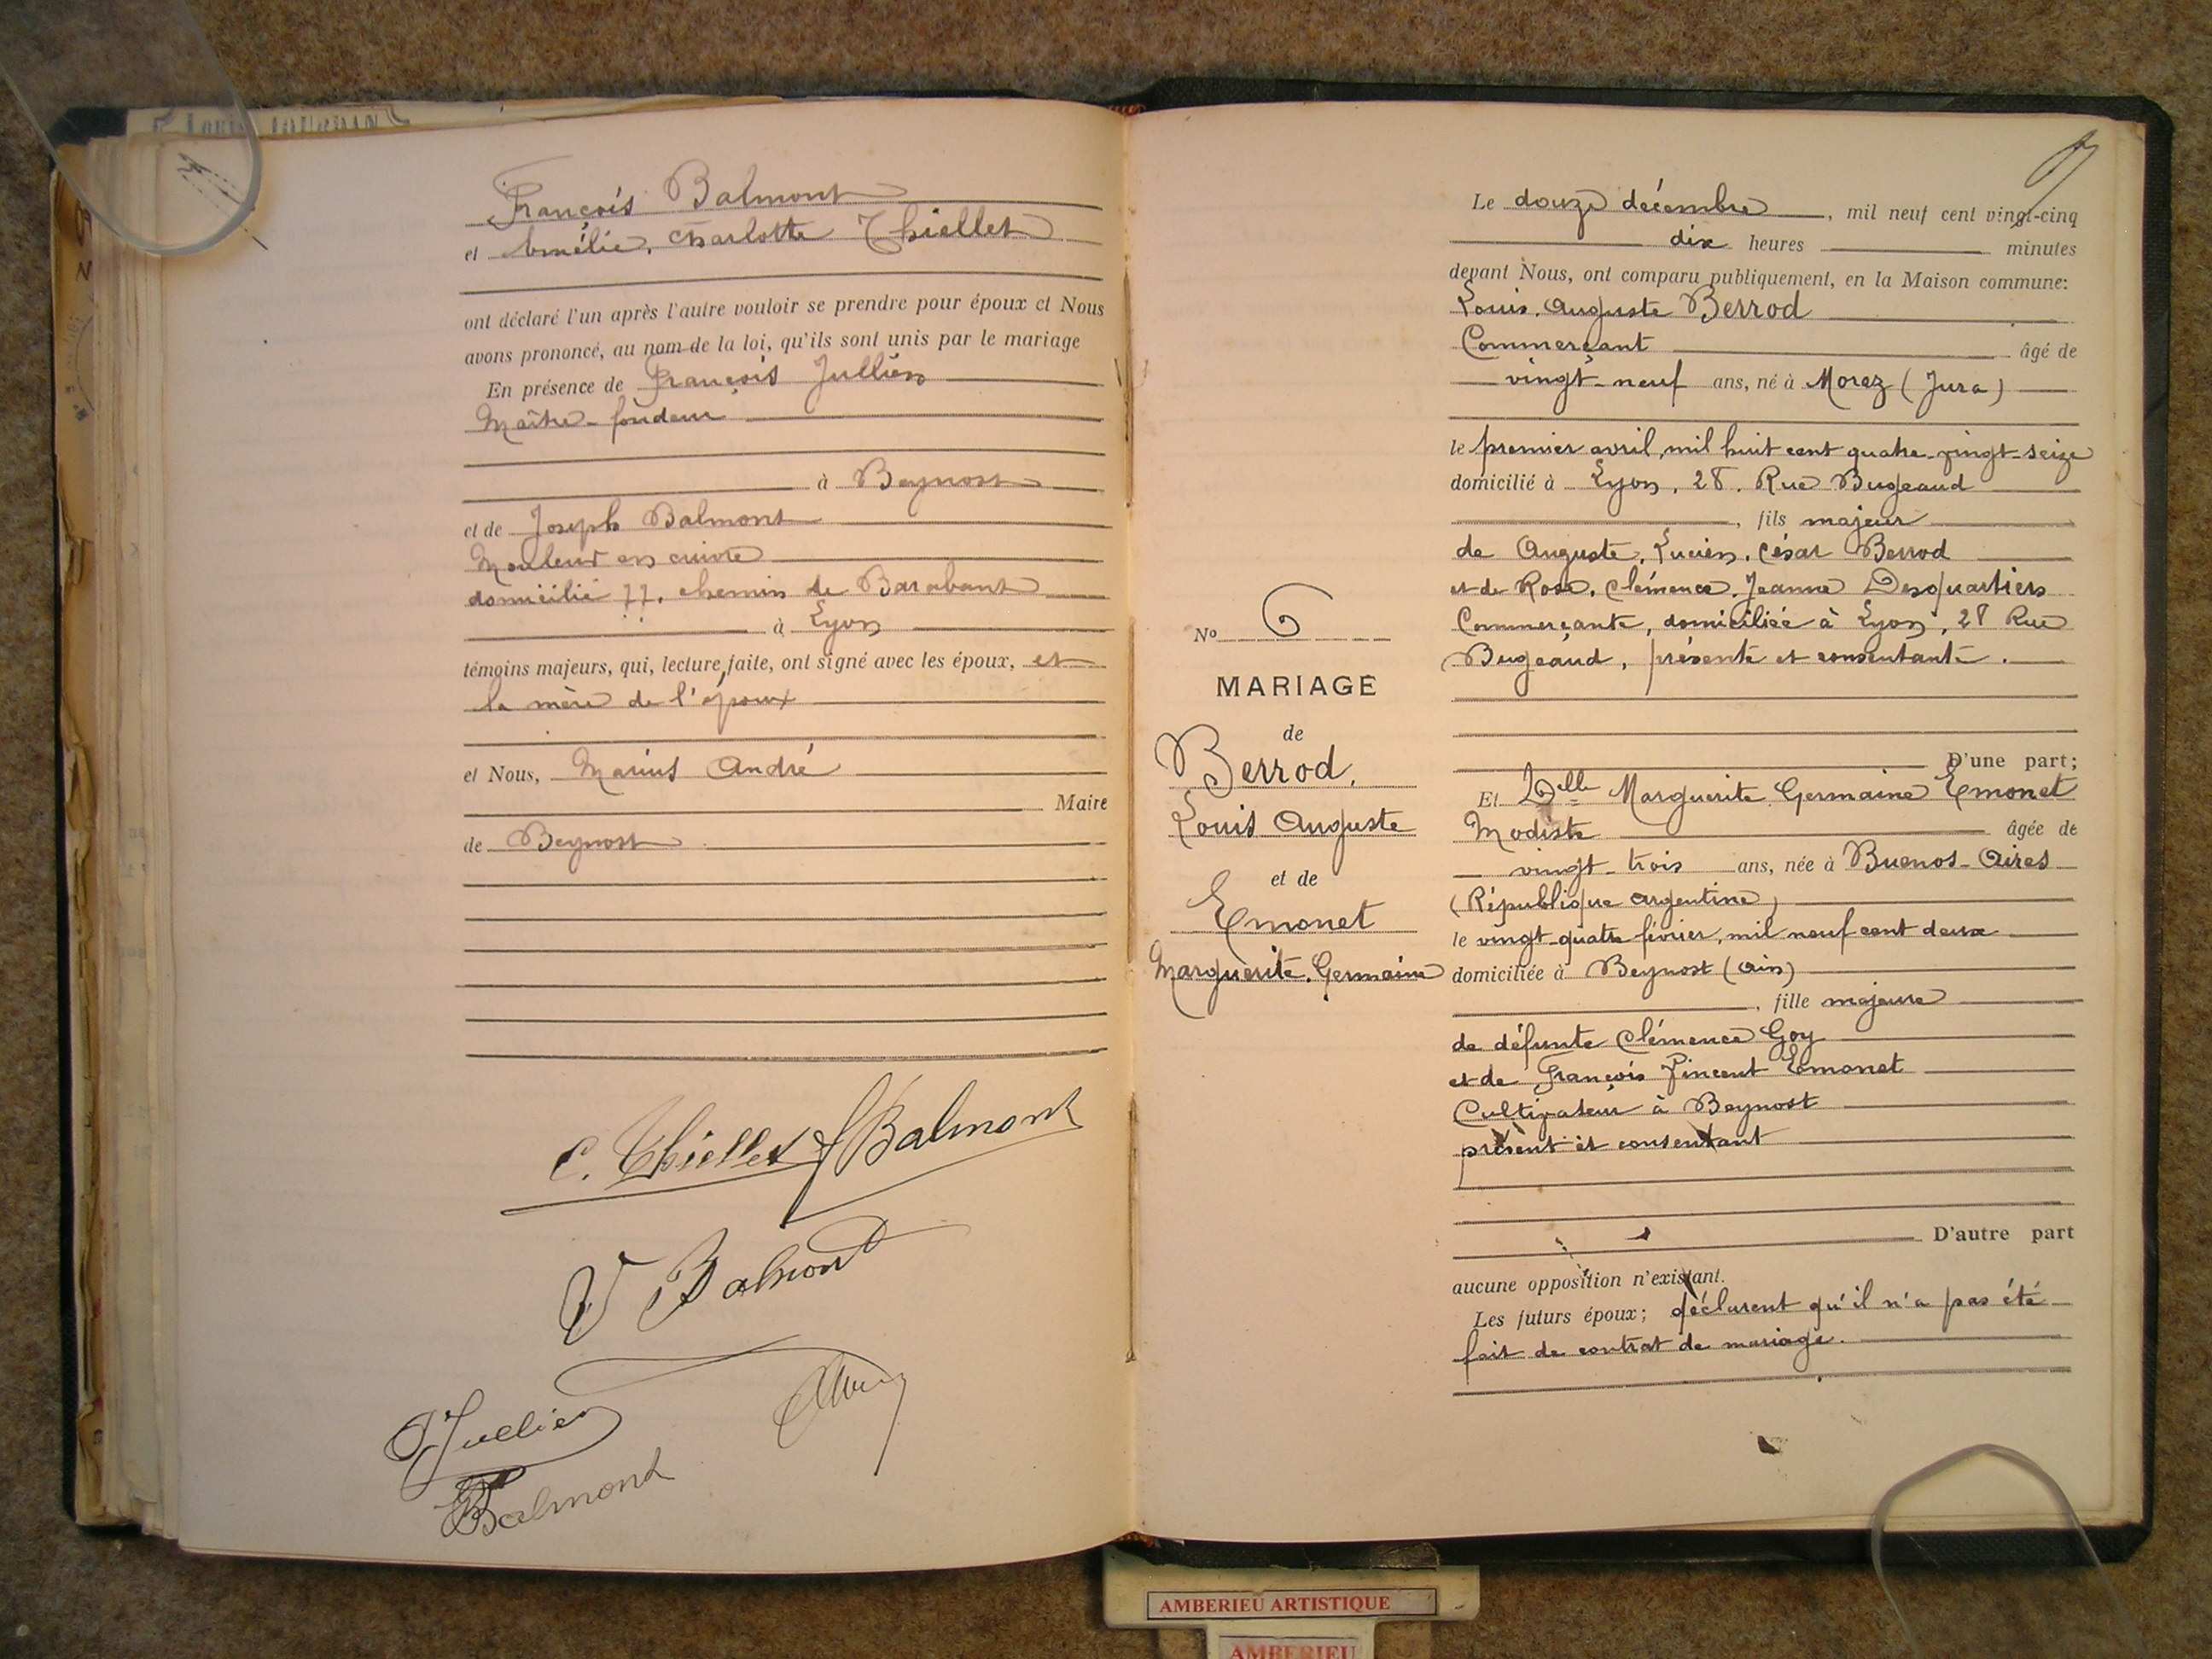 Louis JOURDAN
François Balmont
et Amélie, Charlotte Thiellet
ont déclaré l'un après l'autre vouloir se prendre pour époux et Nous
avons prononcé, au nom de la loi, qu'ils sont unis par le mariage
En présence de François Jullien
Maître-fondeur
à Beynost
et de Joseph Balmont
Mouleur en cuivre
domicilié 77, chemin de Baraband
à Lyon
témoins majeurs, qui, lecture faite, ont signé avec les époux, et
la mère de l'époux
et Nous, Marius André
Maire
de Beynost
C. Thiellet Balmont
V Balmont
Jullien
Balmont
No 6
MARIAGE
de
Berrod,
Louis Auguste
et de
Emonet
Marguerite, Germaine
Le douze décembre, mil neuf cent vingt-cinq
dix heures minutes
devant Nous, ont comparu publiquement, en la Maison commune:
Louis, Auguste Berrod
Commerçant âgé de
vingt-neuf ans, né à Morez (Jura)
le premier avril, mil huit cent quatre-vingt-seize
domicilié à Lyon, 28, Rue Bugeaud
, fils majeur
de Auguste, Lucien, César Berrod
et de Rose, Clémence, Jeanne Desquartiers
Commerçante, domiciliée à Lyon, 28 Rue
Bugeaud, présente et consentante.
D'une part;
Et Delle Marguerite, Germaine Emonet
Modiste âgée de
vingt-trois ans, née à Buenos-Aires
(République argentine)
le vingt-quatre février, mil neuf cent deux
domiciliée à Beynost (Ain)
, fille majeure
de défunte Clémence Goy
et de François Vincent Emonet
Cultivateur à Beynost
présent et consentant
D'autre part
aucune opposition n'existant.
Les futurs époux; déclarent qu'il n'a pas été
fait de contrat de mariage.
AMBERIEU ARTISTIQUE
AMBERIEU